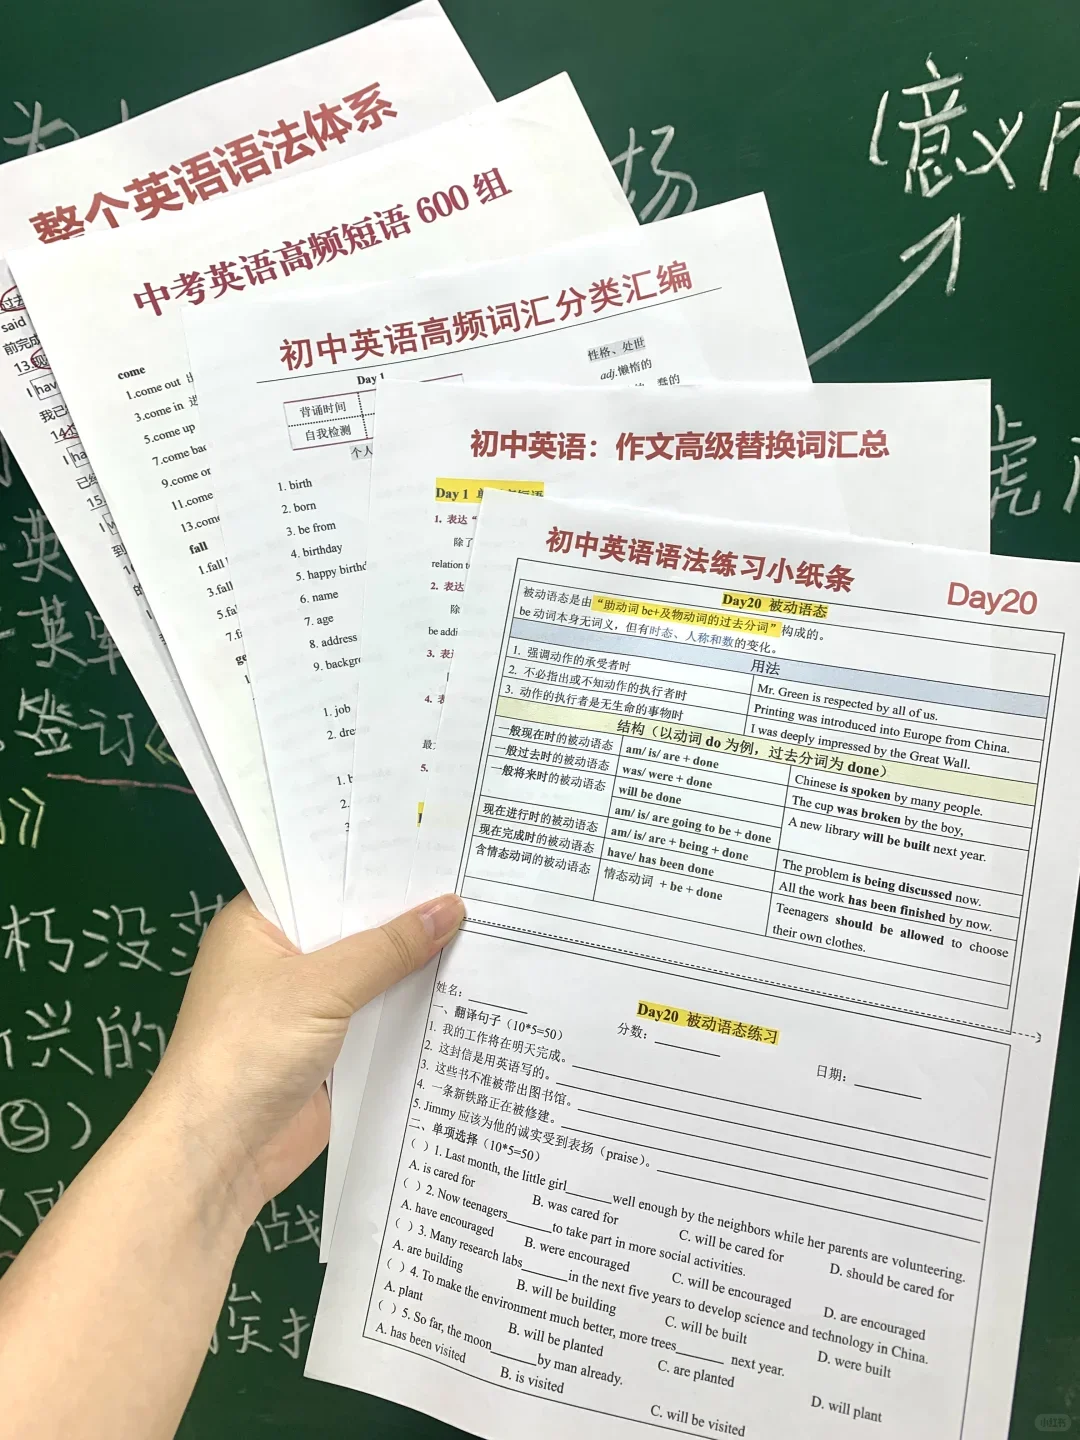 整个英语语法体系
中考英语高频短语 600 组
初中英语高频词汇分类汇编
初中英语：作文高级替换词汇总
初中英语语法练习小纸条
Day20
said
前完成
13.现
I hav
14.
I ha
15.
come
1.come out
3.come in 进
5.come up
7.come bac
9.come or
11.come
13.come
fall
1.fall
3.fall
5.fal
7.fa
ge
Day 1
背诵时间
自我检测
个人
性格、处世
adj.懒惰的
蠢的
1. birth
2. born
3. be from
4. birthday
5. happy birthd
6. name
7. age
8. address
9. backgro
1. job
2. dre
Day 1
1. 表达“
除了
relation t
2. 表达
除
be addi
3. 表
4. 表
5.
Day20 被动语态
被动语态是由“助动词 be+及物动词的过去分词”构成的。
be 动词本身无词义，但有时态、人称和数的变化。
用法
1. 强调动作的承受者时 Mr. Green is respected by all of us.
2. 不必指出或不知动作的执行者时 Printing was introduced into Europe from China.
3. 动作的执行者是无生命的事物时 I was deeply impressed by the Great Wall.
结构（以动词 do 为例，过去分词为 done）
一般现在时的被动语态 am/ is/ are + done Chinese is spoken by many people.
一般过去时的被动语态 was/ were + done The cup was broken by the boy,
一般将来时的被动语态 will be done A new library will be built next year.
am/ is/ are going to be + done
现在进行时的被动语态 am/ is/ are + being + done The problem is being discussed now.
现在完成时的被动语态 have/ has been done All the work has been finished by now.
含情态动词的被动语态 情态动词 + be + done Teenagers should be allowed to choose
their own clothes.
Day20 被动语态练习
姓名： 分数： 日期：
一、翻译句子（10*5=50）
1. 我的工作将在明天完成。
2. 这封信是用英语写的。
3. 这些书不准被带出图书馆。
4. 一条新铁路正在被修建。
5. Jimmy 应该为他的诚实受到表扬（praise）。
二、单项选择（10*5=50）
（ ）1. Last month, the little girl______well enough by the neighbors while her parents are volunteering.
A. is cared for B. was cared for C. will be cared for D. should be cared for
（ ）2. Now teenagers______to take part in more social activities.
A. have encouraged B. were encouraged C. will be encouraged D. are encouraged
（ ）3. Many research labs______in the next five years to develop science and technology in China.
A. are building B. will be building C. will be built D. were built
（ ）4. To make the environment much better, more trees______ next year.
A. plant B. will be planted C. are planted D. will plant
（ ）5. So far, the moon______by man already.
A. has been visited B. is visited C. will be visited
扬
意义
虎
英
签订
朽没落
兴的
③）
战
挨打
小红书